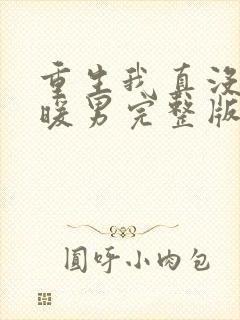 重生我真没
暖男完整版
圆呼小肉包